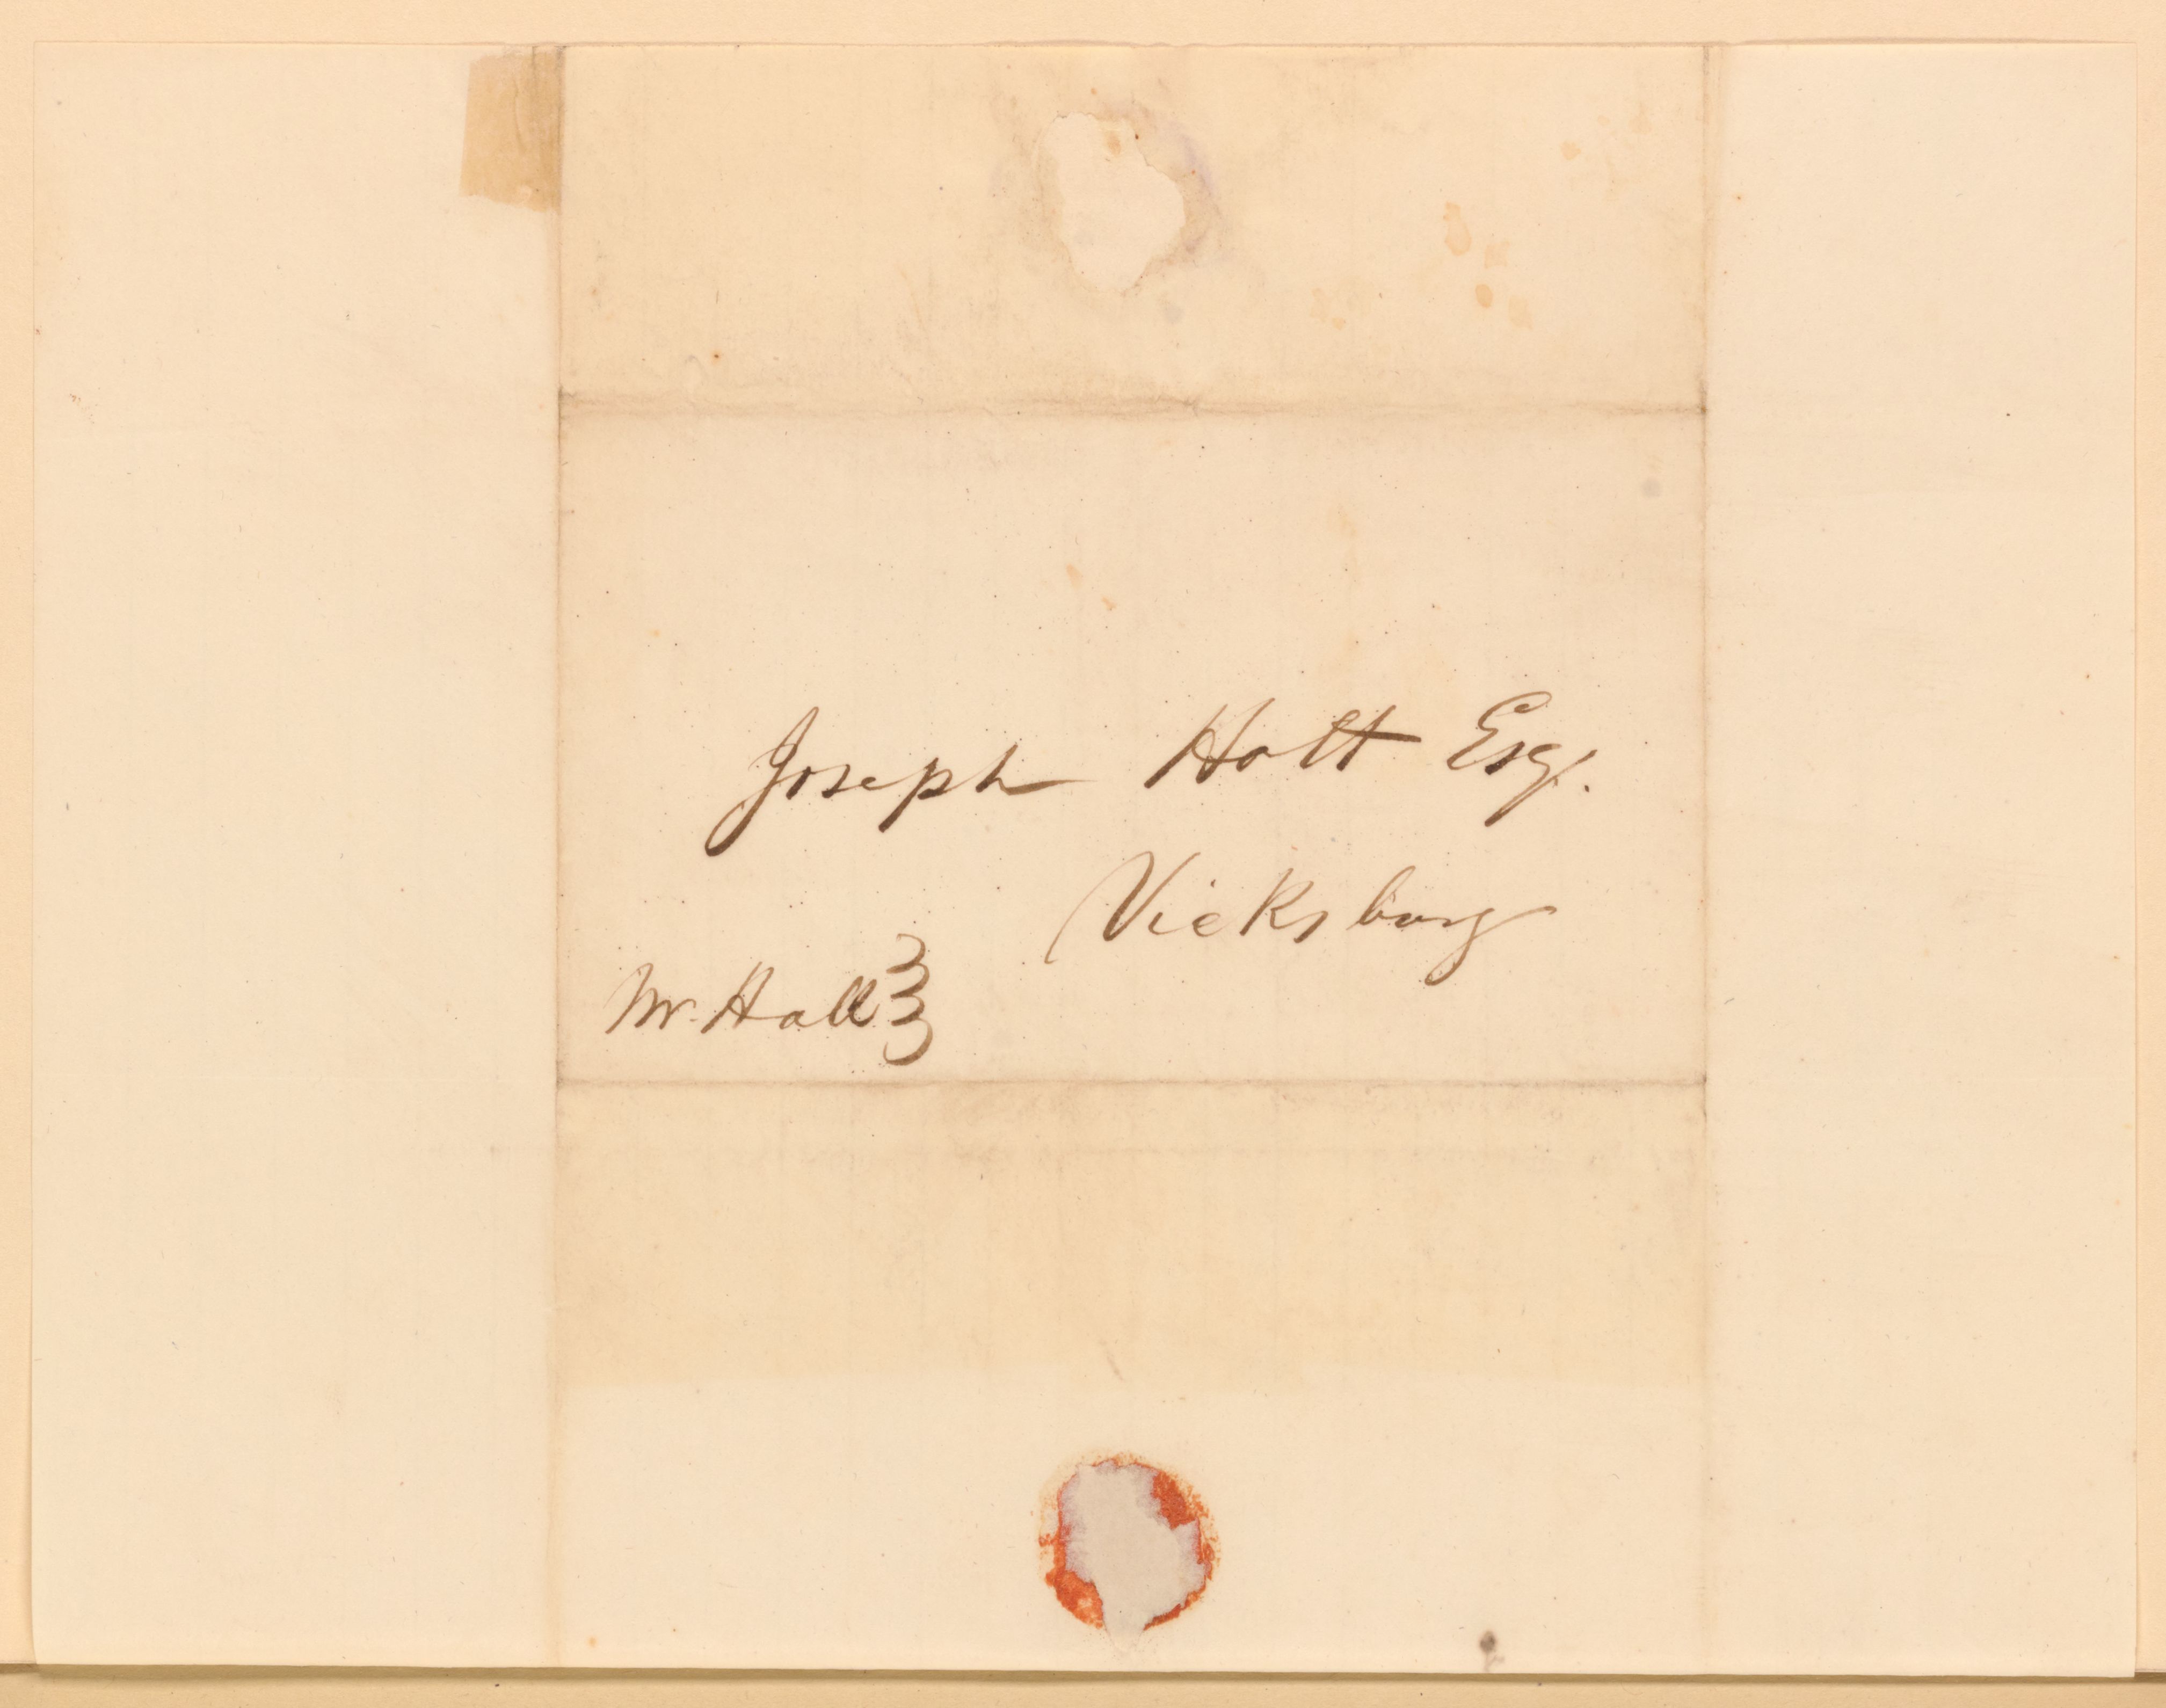 Joseph Holt Esq.
Vicksburg
Mr. Hall